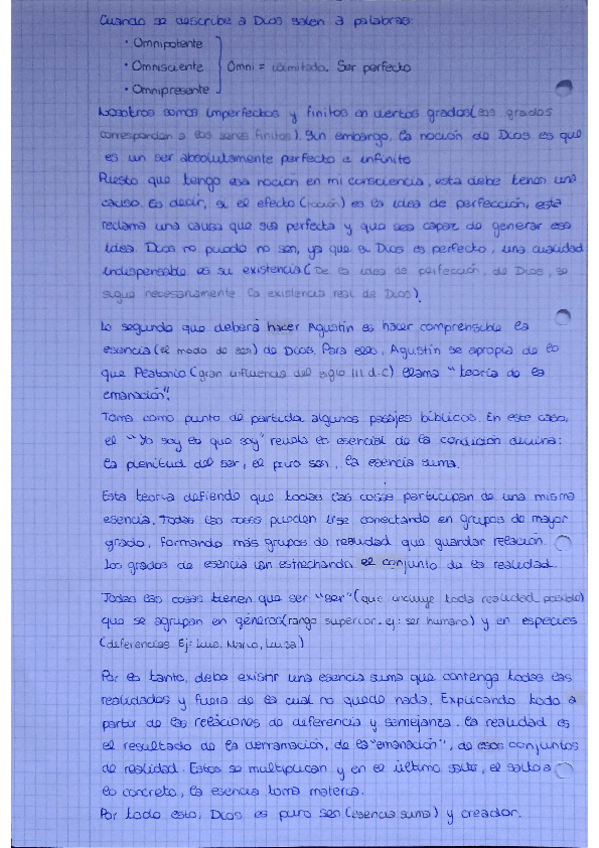 Cuando se describe a Dios salen 3 palabras:
• Omnipotente
• Omnisciente Omni = ilimitado. Ser perfecto
• Omnipresente
Nosotros somos imperfectos y finitos en ciertos grados (los grados
corresponden a los seres finitos). Sin embargo, la noción de Dios es que
es un ser absolutamente perfecto e infinito
Puesto que tengo esa noción en mi consciencia, esta debe tener una
causa. Es decir, si el efecto (noción) es la idea de perfección, esta
reclama una causa que sea perfecta y que sea capaz de generar esa
idea. Dios no puede no ser, ya que si Dios es perfecto, una cualidad
indispensable es su existencia (De la idea de perfección, de Dios, se
sigue necesariamente la existencia real de Dios).
Lo segundo que deberá hacer Agustín es hacer comprensible la
esencia (el modo de ser) de Dios. Para ello, Agustín se apropia de lo
que (gran influencia del siglo III d.C) llama "teoría de la
emanación".
Toma como punto de partida algunos pasajes bíblicos. En este caso,
el "Yo soy lo que soy" revela lo esencial de la condición divina:
la plenitud del ser, el puro ser, la esencia suma.
Esta teoría defiende que todas las cosas participan de una misma
esencia. Todas las cosas pueden irse conectando en grupos de mayor
grado, formando más grupos de realidad que guardan relación.
Los grados de esencia van estrechando el conjunto de la realidad.
Todas las cosas tienen que ser "ser" (que incluye toda realidad posible)
que se agrupan en géneros (rango superior. ej: ser humano) y en especies
(diferencias Ej: Luis, Mario, Luisa)
Por lo tanto, debe existir una esencia suma que contenga todas las
realidades y fuera de la cual no quede nada, Explicando todo a
partir de las relaciones de diferencia y semejanza. La realidad es
el resultado de la derramación, de la "emanación", de esos conjuntos
de realidad. Estos se multiplican y en el último salto, el salto a
lo concreto, la esencia toma materia.
Por todo esto, Dios es puro ser (esencia suma) y creador.